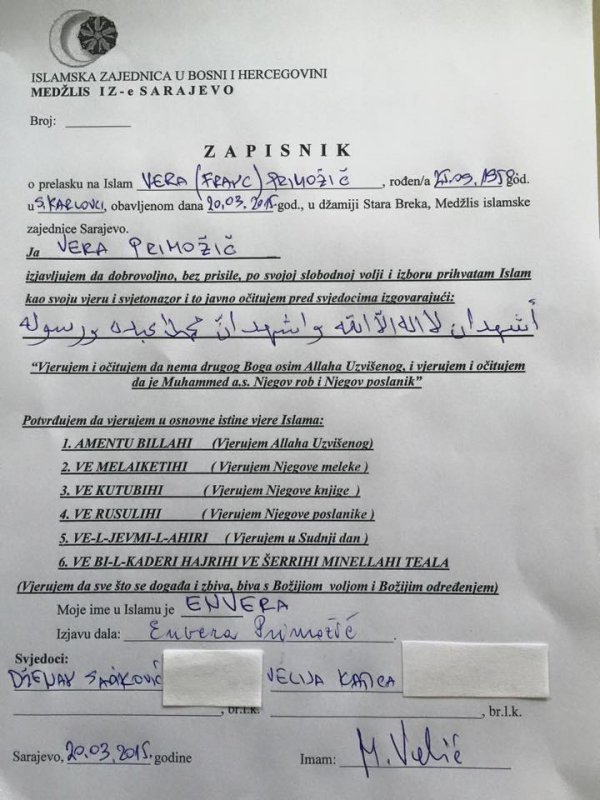 ISLAMSKA ZAJEDNICA U BOSNI I HERCEGOVINI
MEDŽLIS IZ-e SARAJEVO
Broj:
ZAPISNIK
o prelasku na Islam VERA (FRANC) PRIMOŽIČ, rođen/a 25.09.1958 god.
u S. KARLOVCI, obavljenom dana 20.03.2015 god., u džamiji Stara Breka, Medžlis islamske
zajednice Sarajevo.
Ja VERA PRIMOŽIČ
izjavljujem da dobrovoljno, bez prisile, po svojoj slobodnoj volji i izboru prihvatam Islam
kao svoju vjeru i svjetonazor i to javno očitujem pred svjedocima izgovarajući:
أشهد ان لا اله الا الله و اشهد ان محمدا عبده و رسوله
“Vjerujem i očitujem da nema drugog Boga osim Allaha Uzvišenog, i vjerujem i očitujem
da je Muhammed a.s. Njegov rob i Njegov poslanik”
Potvrđujem da vjerujem u osnovne istine vjere Islama:
1. AMENTU BILLAHI (Vjerujem Allaha Uzvišenog)
2. VE MELAIKETIHI ( Vjerujem Njegove meleke )
3. VE KUTUBIHI ( Vjerujem Njegove knjige )
4. VE RUSULIHI ( Vjerujem Njegove poslanike )
5. VE-L-JEVMI-L-AHIRI ( Vjerujem u Sudnji dan )
6. VE BI-L-KADERI HAJRIHI VE ŠERRIHI MINELLAHI TEALA
(Vjerujem da sve što se događa i zbiva, biva s Božijiom voljom i Božijim određenjem)
Moje ime u Islamu je ENVERA
Izjavu dala: Envera Primožič
Svjedoci:
VELIJA
, br.l.k. , br.l.k.
Sarajevo, 20.03.2015. godine Imam: M. Velić